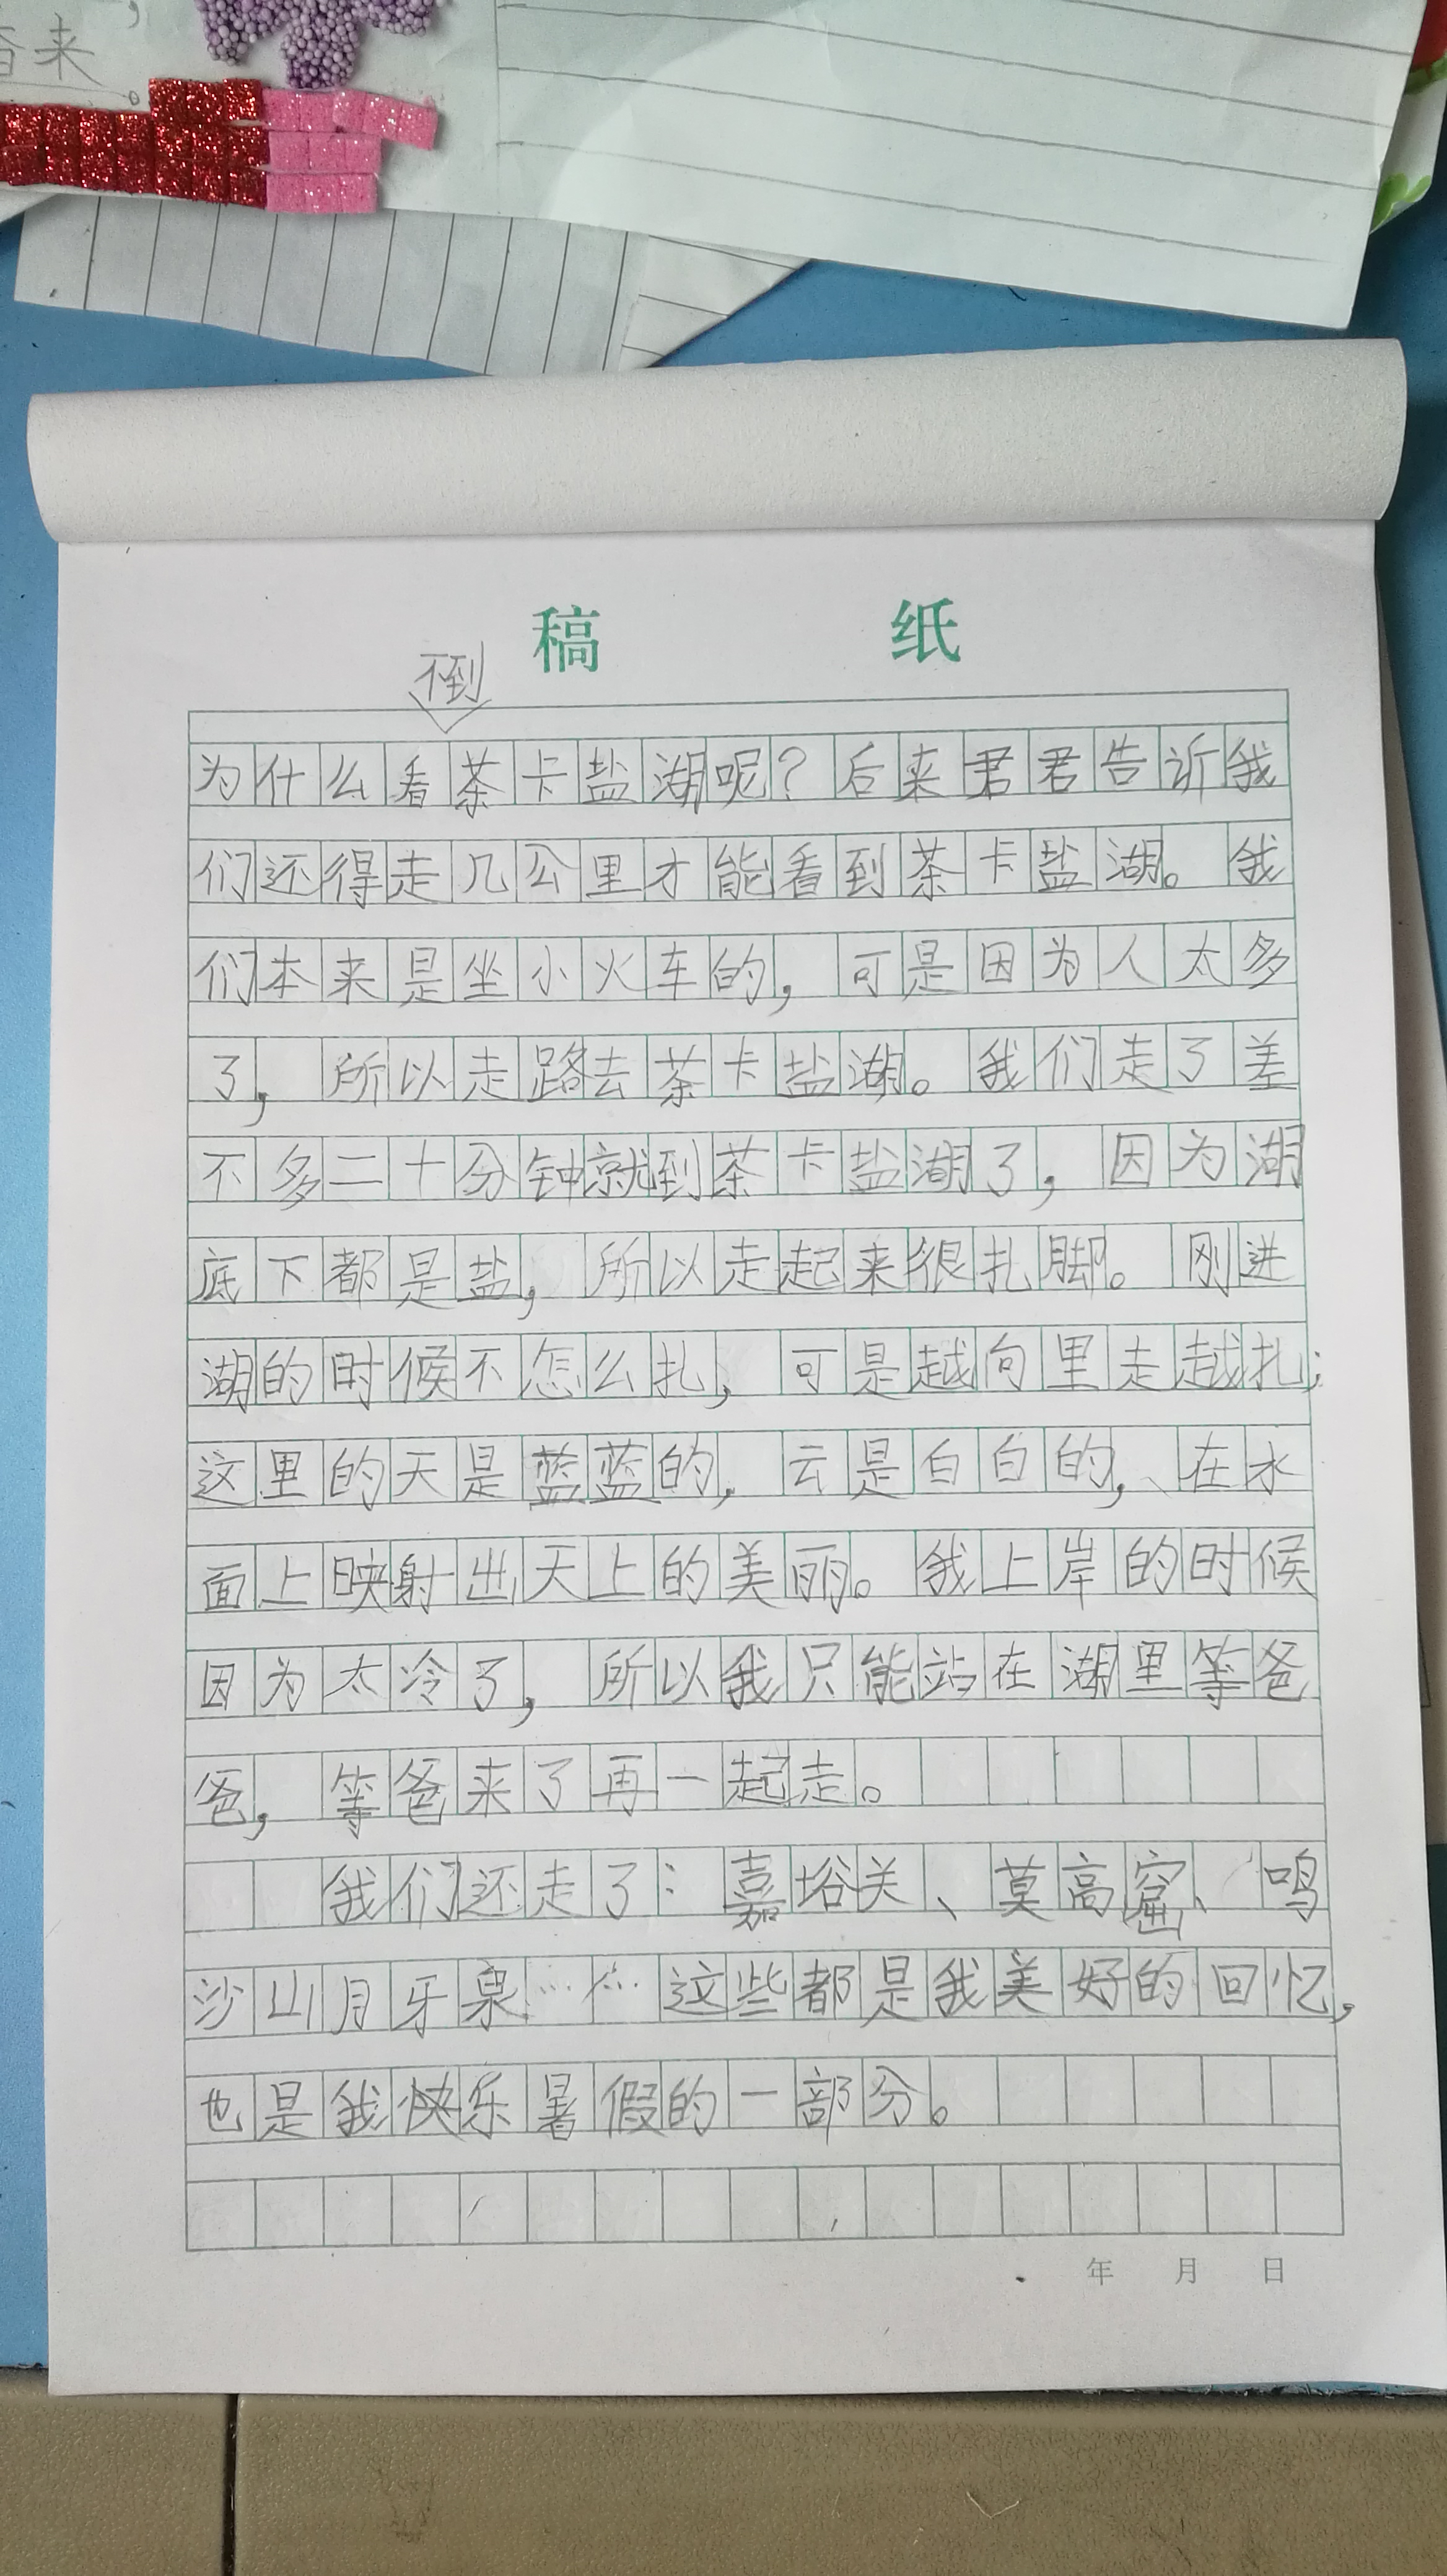 来
稿 纸
不到
为什么看茶卡盐湖呢？后来君君告诉我
们还得走几公里才能看到茶卡盐湖。我
们本来是坐小火车的，可是因为人太多
了，所以走路去茶卡盐湖。我们走了差
不多二十分钟就到茶卡盐湖了，因为湖
底下都是盐，所以走起来很扎脚。刚进
湖的时候不怎么扎，可是越向里走越扎；
这里的天是蓝蓝的，云是白白的，、在水
面上映射出天上的美丽。我上岸的时候
因为太冷了，所以我只能站在湖里等爸
爸，等爸来了再一起走。
我们还走了：嘉峪关、莫高窟、鸣
沙山月牙泉……这些都是我美好的回忆，
也是我快乐暑假的一部分。
年 月 日